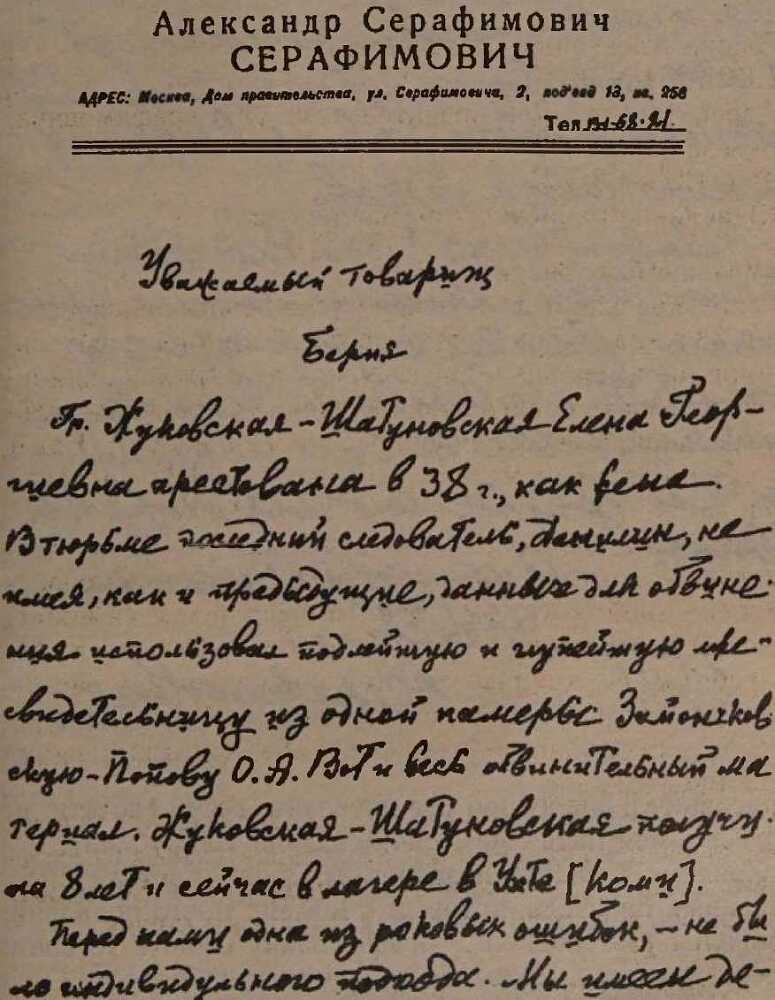 Александр Серафимович
СЕРАФИМОВИЧ
АДРЕС: Москва, Дом правительства, ул. Серафимовича, 2, под'езд 13, кв. 256
Тел.
Уважаемый товарищ
Берия
Гр. Жуковская-Шатуновская Елена Геор-
гиевна арестована в 38 г., как жена.
В тюрьме последний следователь, не
имея, как и предыдущие, данных для обвине-
ния использовал подлейшую и глупейшую лже-
свидетельницу из одной камеры Зайончков
скую-Попову О.А. Вот и весь обвинительный ма
териал. Жуковская-Шатуновская получи-
ла 8 лет и сейчас в лагере в Ухте [Коми].
Перед нами одна из роковых ошибок, – не бы
ло индивидульного подхода. Мы имеем де-